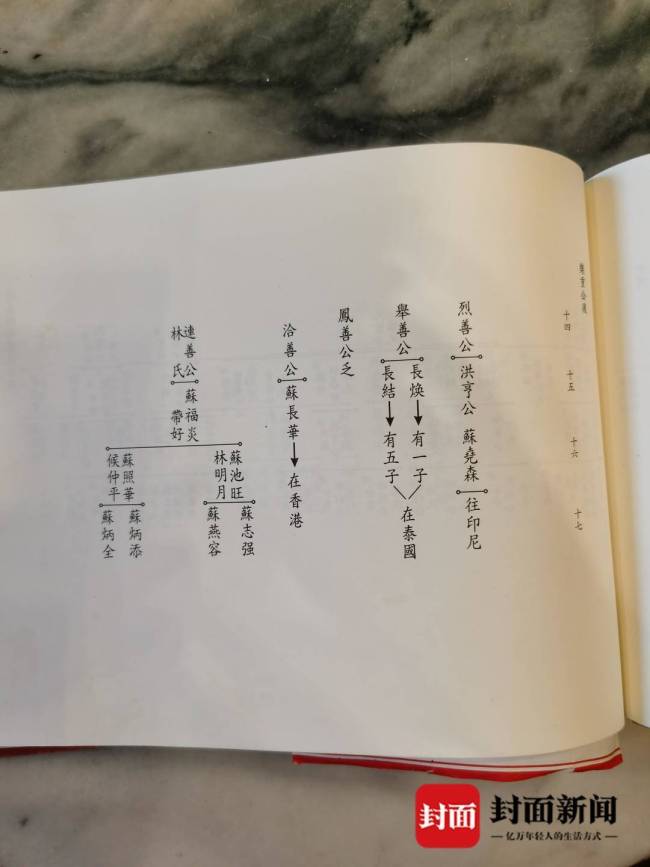 十四
十五
十六
十七
烈善公
洪亨公
蘇堯森
往印尼
舉善公
長煥
有一子
長結
有五子
在泰國
鳳善公乏
洽善公
蘇長華
在香港
連善公
林氏
蘇福炎
帶好
蘇池旺
林明月
蘇志强
蘇燕容
蘇照華
候仲平
蘇炳添
蘇炳全
封面
封面新闻
亿万年轻人的生活方式